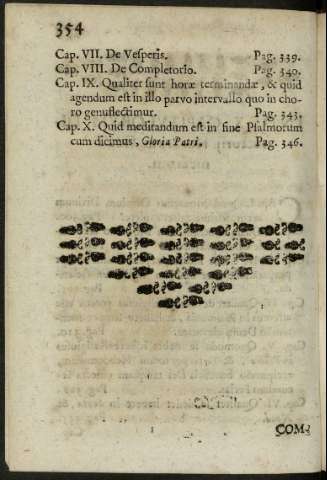 354
Cap. VII. De Vesperis. Pag. 339.
Cap. VIII. De Completorio. Pag. 340.
Cap. IX. Qualiter sunt horæ terminandæ, & quid
agendum est in illo parvo intervallo quo in cho-
ro genuflectimur. Pag. 343.
Cap. X. Quid meditandum est in fine Psalmorum
cum dicimus, Gloria Patri. Pag. 346.
COM-